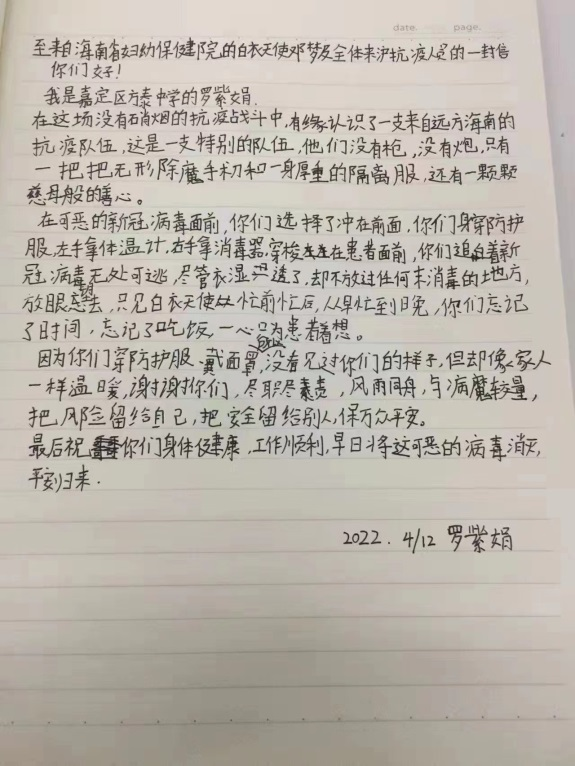 date. page.
至来自海南省妇幼保健院的白衣天使邓梦及全体来沪抗疫人员的一封信
你们好!
我是嘉定区方泰中学的罗紫娟.
在这场没有硝烟的抗疫战斗中,有缘认识了一支来自远方海南的
抗疫队伍,这是一支特别的队伍,他们没有枪,没有炮,只有
一把把无形除魔手术刀和一身厚重的隔离服,还有一颗颗
慈母般的善心。
在可恶的新冠病毒面前,你们选择了冲在前面,你们身穿防护
服,左手拿体温计,右手拿消毒器,穿梭在患者面前,你们追着新
冠病毒无处可逃,尽管衣湿透了,却不放过任何未消毒的地方,
放眼望去,只见白衣天使忙前忙后,从早忙到晚,你们忘记
了时间,忘记了吃饭,一心只为患者着想。
因为你们穿防护服、戴面罩,没有见过你们的样子,但却像家人
一样温暖,谢谢你们,尽职尽责,风雨同舟,与病魔较量,
把风险留给自己,把安全留给别人,保万众平安。
最后祝你们身体健康,工作顺利,早日将这可恶的病毒消灭,
平安归来.
2022. 4/12 罗紫娟